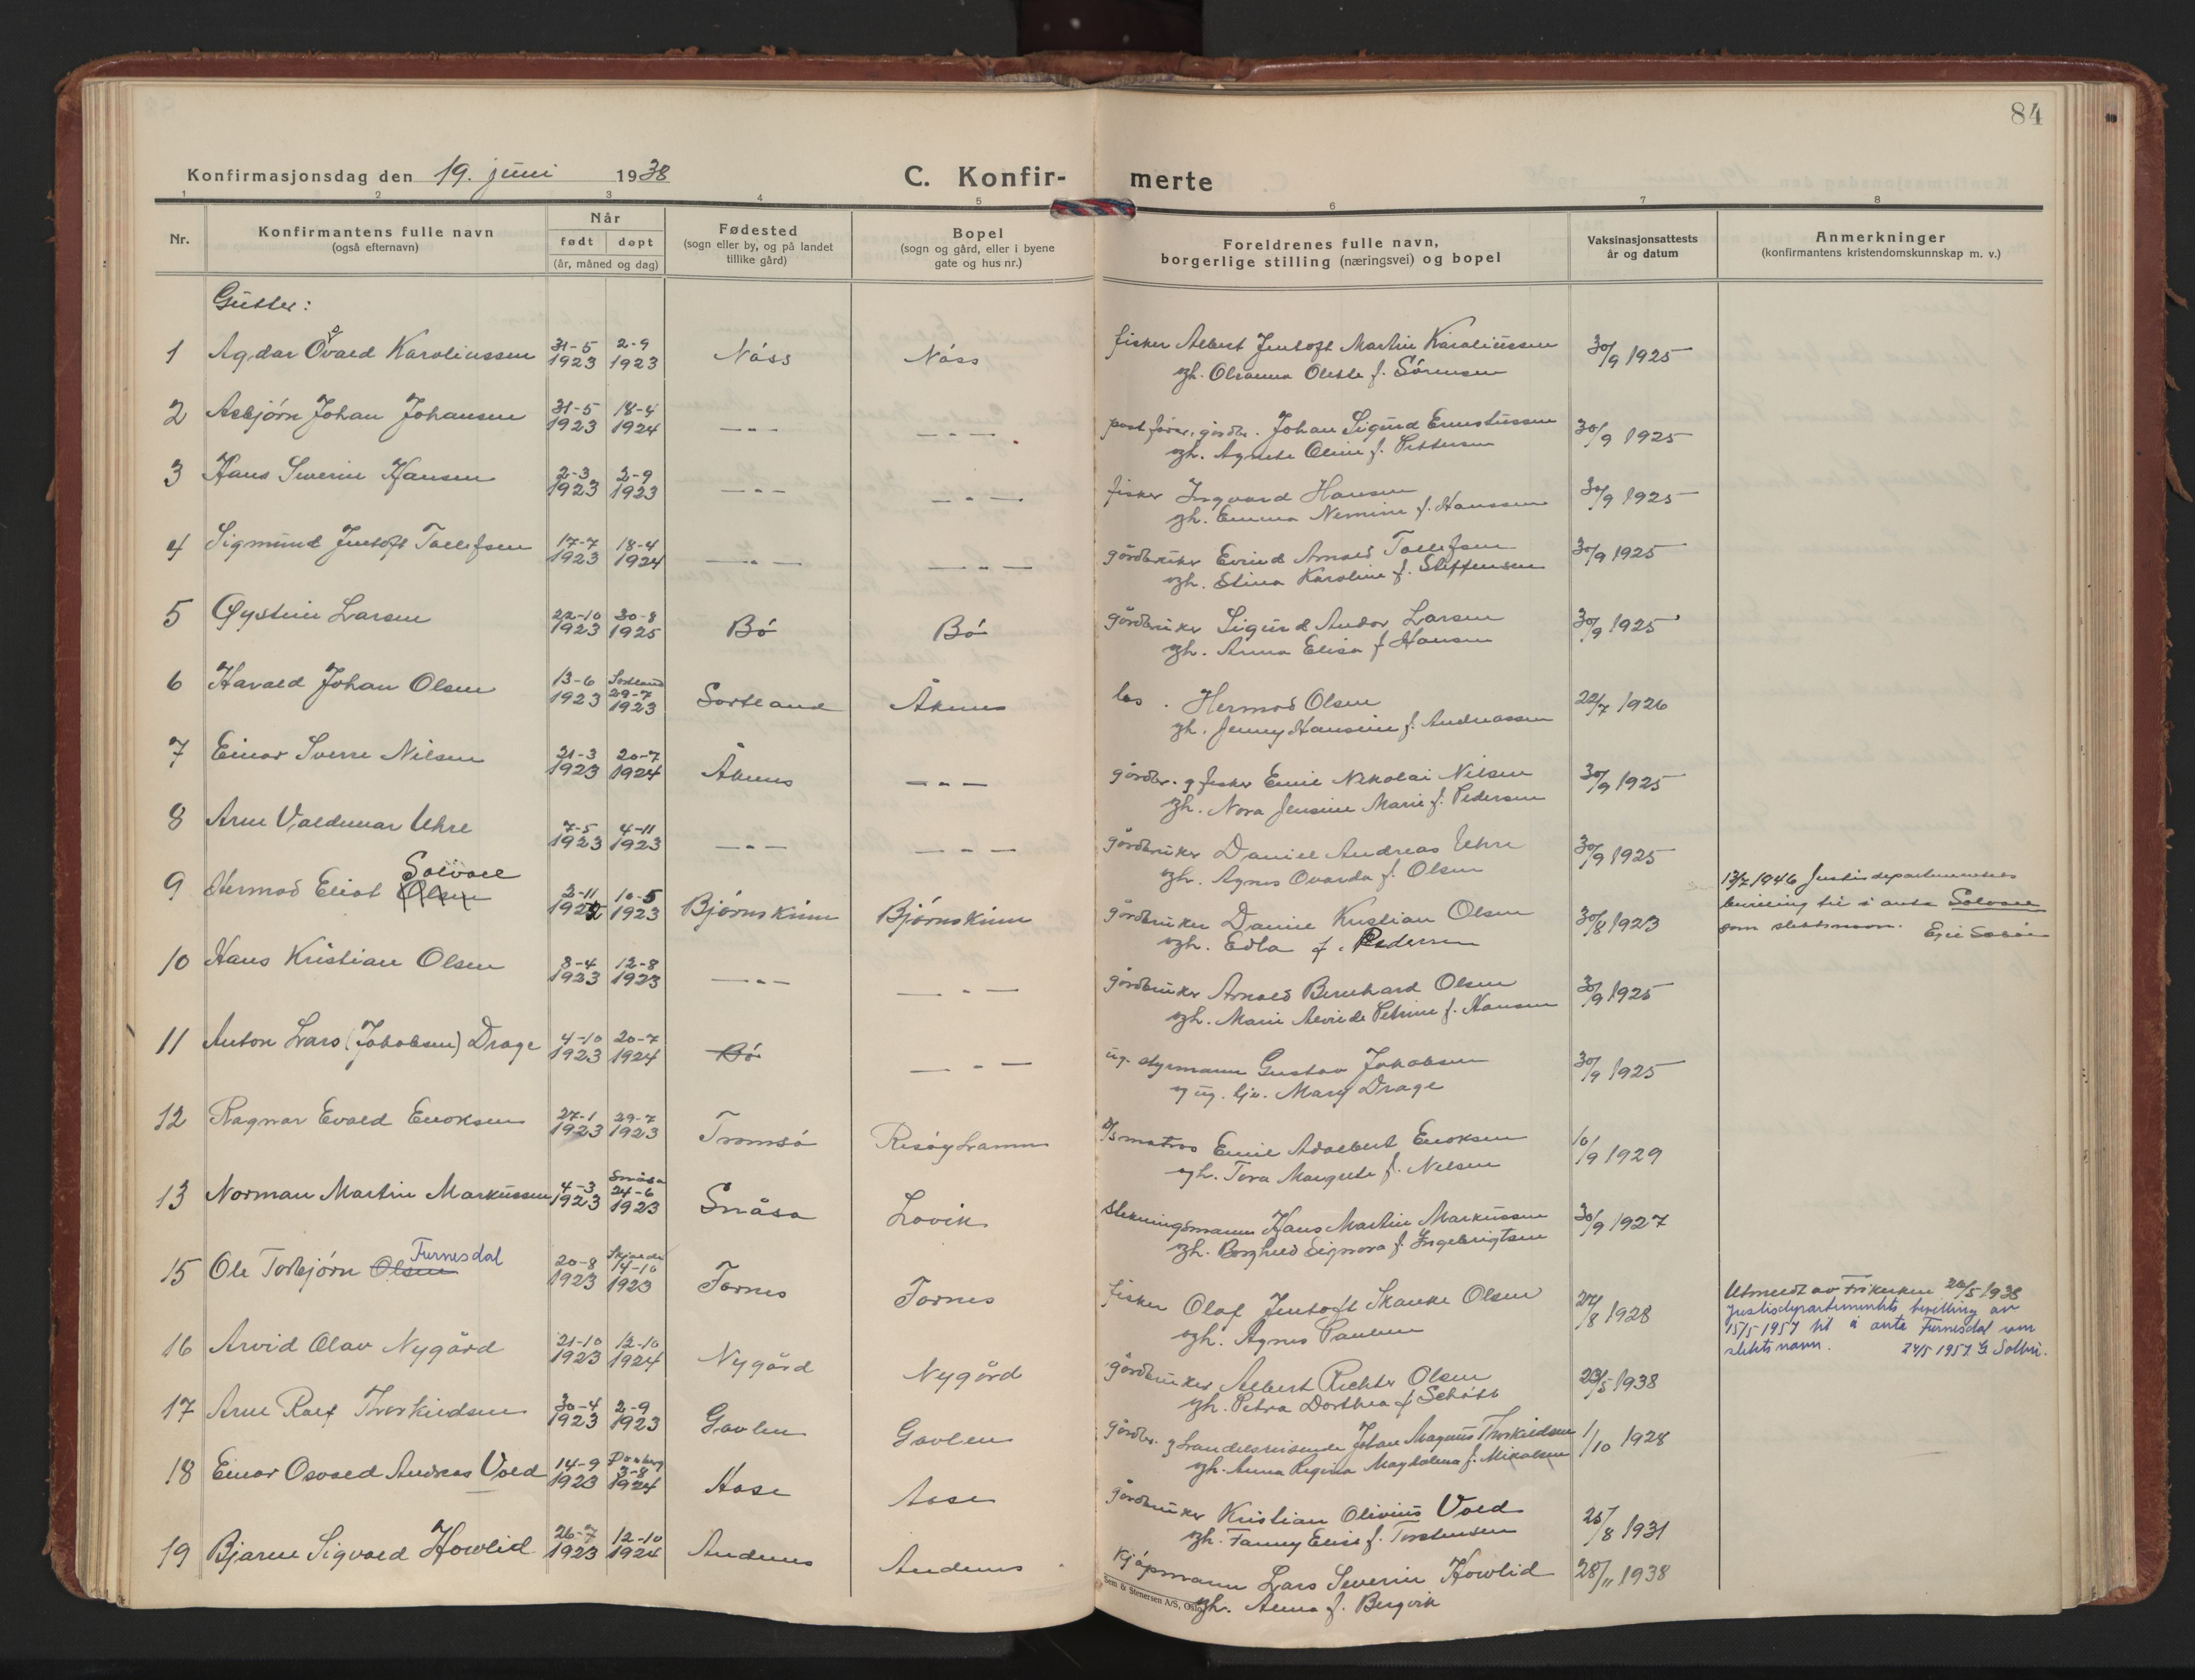 84
Konfirmasjonsdag den 19. juni 1938
C. Konfir- merte
1 2 3 4 5 6 7 8
Nr.
Konfirmantens fulle navn
(også efternavn)
Når
født døpt
(år, måned og dag)
Fødested
(sogn eller by, og på landet
tillike gård)
Bopel
(sogn og gård, eller i byene
gate og hus nr.)
Foreldrenes fulle navn,
borgerlige stilling (næringsvei) og bopel
Vaksinasjonsattests
år og datum
Anmerkninger
(konfirmantens kristendomskunnskap m. v.)
Gutter:
1 Agdar Ovald Karoliussen 31-5 1923 2-9 1923 Näss Näss
fisker Albert Jentoft Martin Karoliussen 30/9 1925
og h. Olianna Oletle f. Sörensen
2 Asbjörn Johan Johansen 31-5 1923 18-4 1924 — " — — " —
Johan Sigurd Ernstussen 30/9 1925
og h. Agnete Oline f. Pettersen
3 Hans Severin Hansen 2-3 1923 2-9 1923 — " — — " —
fisker Ingvard Hansen 30/9 1925
og h. Emma Nermine f. Hanssen
4 Sigmund Jentoft Tollefsen 17-7 1923 18-4 1924 — " — — " —
gårdbruker Eivind Arnold Tollefsen 30/9 1925
og h. Stina Karoline f. Steffensen
5 Øystein Larsen 22-10 1923 30-8 1925 Bö Bö
gårdbruker Sigurd Andor Larsen 30/9 1925
og h. Anna Elisa f. Hansen
6 Harald Johan Olsen 13-6 1923 Sortland 29-7 1923 Sortland Åknes
los. Hermod Olsen 22/7 1926
og h. Jenny Hansine f. Andreassen
7 Einar Sverre Nilsen 21-3 1923 20-7 1924 Åknes — " —
gårdbr. og fisker Emil Nikolai Nilsen 30/9 1925
og h. Nora Jensine Marie f. Pedersen
8 Arne Valdemar Uhre 7-5 1923 4-11 1923 — " — — " —
gårdbruker Daniel Andreas Uhre 30/9 1925
og h. Agnes Ovarda f. Olsen
9 Hermod Eliot Olsen Solvoll 2-11 1922 10-5 1923 Björnskinn Björnskinn
gårdbruker Daniel Kristian Olsen 30/8 1923
og h. Edla f. Pedersen
13/7 1946 Justisdepartementets
bevilling til å anta Solvoll
som slektsnavn.
10 Hans Kristian Olsen 8-4 1923 12-8 1923 — " — — " —
gårdbruker Arnold Bernhard Olsen 30/9 1925
og h. Marie Alvilde Petrine f. Hansen
11 Anton Lars (Jakobsen) Drage 4-10 1923 20-7 1924 Bö — " —
ug. styrmann Gustav Jakobsen 30/9 1925
og ug. tjv. Mary Drage
12 Ragnar Evald Enoksen 27-1 1923 29-7 1923 Tromsö Risöyhamn
matros Emil Adalbert Enoksen 10/9 1929
og h. Tora Margrete f. Nilsen
13 Norman Martin Markussen 4-3 1923 Snåsa 24-6 1923 Snåsa Lovik
Hans Martin Markussen 30/9 1927
og h. Borghild Signora f. Ingebrigtsen
15 Ole Torbjörn Olsen Furnesdal 20-8 1923 14-10 1923 Fornes Fornes
fisker Olaf Jentoft Skanke Olsen 24/8 1928
og h. Agnes Paulsen
Utmeldt av Frikirken 20/5 1938
Justisdepartementets bevilling av
15/5 1957 til å anta Furnesdal som
slektsnavn. 24/5 1957
16 Arvid Olav Nygård 21-10 1923 12-10 1924 Nygård Nygård
gårdbruker Albert Richter Olsen 23/5 1938
og h. Petra Dorthea f. Schött
17 Arne Rolf Thorkildsen 30-4 1923 2-9 1923 Gavlen Gavlen
gårdbr. og handelsreisende Johan Magnus Thorkildsen 1/10 1928
og h. Anna Regina Magdalena f. Mikalsen
18 Einar Osvald Andreas Vold 14-9 1923 3-8 1924 Aase Aase
gårdbruker Kristian Olivius Vold 25/8 1931
og h. Fanny Elise f. Torstensen
19 Bjarne Sigvald Howlid 26-7 1923 12-10 1924 Andenes Andenes
kjöpmann Lars Severin Howlid 28/11 1938
og h. Alma f. Bergvik
Sem & Stenersen A/S, Oslo